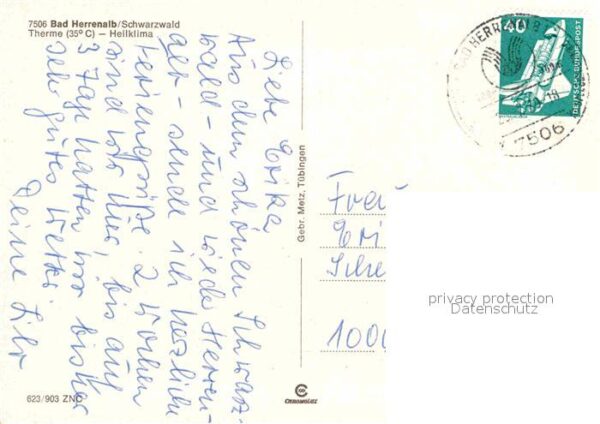 7506 Bad Herrenalb/Schwarzwald
Therme (35° C) — Heilklima
Liebe Erika,
Aus dem schönen Schwarz-
wald - und wieder Herren-
alb - sende ich herzliche
Feriengrüße. 2 Wochen
sind wir hier, bis auf
3 Tage hatten wir bisher
sehr gutes Wetter.
Deine
Gebr. Metz, Tübingen
623/903 ZNC
CHROMOLUX
40
DEUTSCHE BUNDESPOST
BAD HERRENALB
7506
Frau
Eri
Sche
1000
privacy protection
Datenschutz